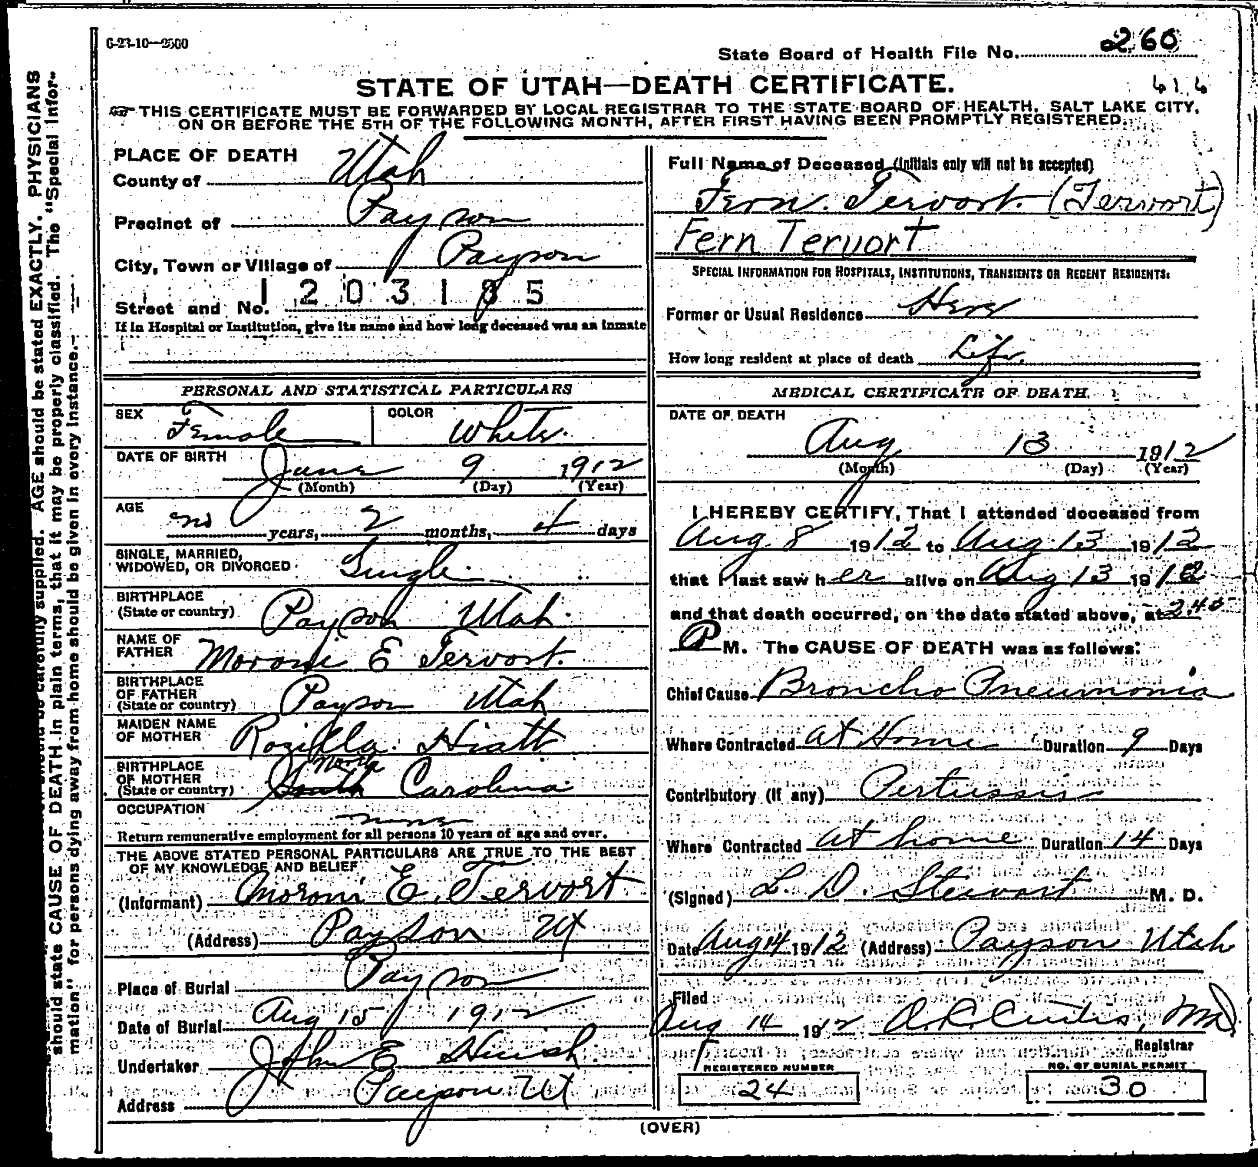 6-23-10—2500
State Board of Health File No. 260
STATE OF UTAH—DEATH CERTIFICATE.
414
THIS CERTIFICATE MUST BE FORWARDED BY LOCAL REGISTRAR TO THE STATE BOARD OF HEALTH, SALT LAKE CITY,
ON OR BEFORE THE 5TH OF THE FOLLOWING MONTH, AFTER FIRST HAVING BEEN PROMPTLY REGISTERED.
PLACE OF DEATH
County of Utah
Precinct of Payson
City, Town or Village of Payson
Street and No. 1203185
If in Hospital or Institution, give its name and how long deceased was an inmate
PERSONAL AND STATISTICAL PARTICULARS
SEX Female COLOR White.
DATE OF BIRTH June 9 1912
(Month) (Day) (Year)
AGE no years, 2 months, 4 days
SINGLE, MARRIED,
WIDOWED, OR DIVORCED Single.
BIRTHPLACE
(State or country) Payson Utah.
NAME OF
FATHER Moroni E Tervort.
BIRTHPLACE
OF FATHER
(State or country) Payson Utah
MAIDEN NAME
OF MOTHER Rozilla Hiatt
BIRTHPLACE
OF MOTHER
(State or country) South North Carolina
OCCUPATION none
Return remunerative employment for all persons 10 years of age and over.
THE ABOVE STATED PERSONAL PARTICULARS ARE TRUE TO THE BEST
OF MY KNOWLEDGE AND BELIEF
(Informant) Moroni E. Tervort.
(Address) Payson Ut
Place of Burial Payson
Date of Burial Aug 15 1912
Undertaker John E Huish.
Address Payson Ut
Full Name of Deceased (Initials only will not be accepted)
Fern. Tervort. (Tervort)
Fern Tervort
SPECIAL INFORMATION FOR HOSPITALS, INSTITUTIONS, TRANSIENTS OR RECENT RESIDENTS:
Former or Usual Residence Here
How long resident at place of death Life.
MEDICAL CERTIFICATE OF DEATH.
DATE OF DEATH
Aug 13 1912
(Month) (Day) (Year)
I HEREBY CERTIFY, That I attended deceased from
Aug 8 1912 to Aug 13 1912
that I last saw her alive on Aug 13 1912
and that death occurred, on the date stated above, at 240
P M. The CAUSE OF DEATH was as follows:
Chief Cause Broncho Pneumonia
Where Contracted at Home Duration 9 Days
Contributory (if any) Pertussis
Where Contracted at home Duration 14 Days
(Signed) L. D. Stewart M. D.
Date Aug 14 1912 (Address) Payson Utah
Filed
Aug 14 1912 A. L. Curtis, M.D.
Registrar
REGISTERED NUMBER
24
NO. OF BURIAL PERMIT
30
(OVER)
carefully supplied. AGE should be stated EXACTLY. PHYSICIANS
should state CAUSE OF DEATH in plain terms, that it may be properly classified. The "Special Infor-
mation" for persons dying away from home should be given in every instance.